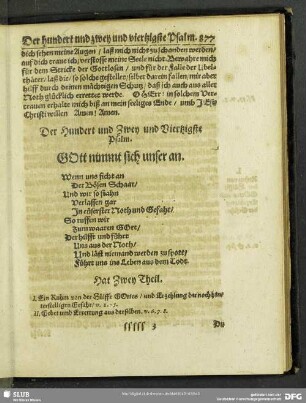 Der hundert und zwey und viertzigste Psalm. 877
dich sehen meine Augen / laß mich nicht zu schanden werden /
auf dich traue ich / verstosse meine Seele nicht. Bewahre mich
für dem Stricke der Gottlosen / und für der Falle der Ubel-
thäter / laß die / so solche gestellet / selber darein fallen / mir aber
hilff durch deinen mächtigen Schutz / daß ich auch aus aller
Noth glücklich errettet werde. O HErr / in solchem Ver-
trauen erhalte mich biß an mein seeliges Ende / umb JEsu
Christi willen Amen / Amen.
Der Hundert und Zwey und Viertzigste
Psalm.
GOtt nimmt sich unser an.
Wenn uns ficht an
Der Bösen Schaar /
Und wir so stahn
Verlassen gar
In eusserster Noth und Gefahr /
So ruffen wir
Zum waaren GOtt /
Der hilfft und führt
Uns aus der Noth /
Und läst niemand werden zu spott /
Führt uns ins Leben aus dem Todt.
Hat Zwey Theil.
I. Ein Ruhm von der Hülffe GOttes / und Erzehlung der nochhin-
terstelligen Gefahr / v. 1. - 5.
II. Gebet und Errettung aus derselben. v. 6. 7. 8.
lllll 3
SLUB
DFG